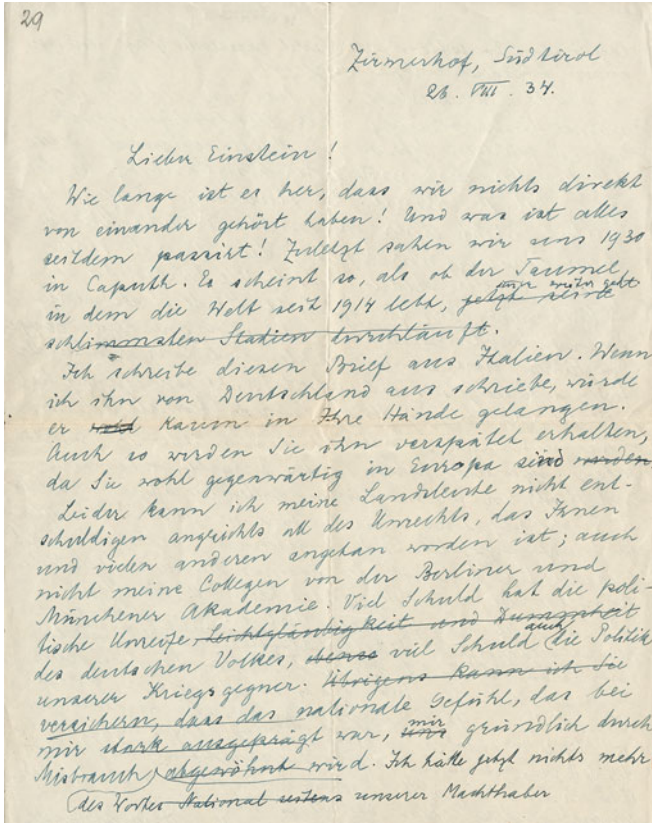 29
Zirmerhof, Südtirol
26. VIII. 34.
Lieber Einstein!
Wie lange ist es her, dass wir nichts direkt
von einander gehört haben! Und was ist alles
seitdem passirt! Zuletzt sahen wir uns 1930
in Caputh. Es scheint so, als ob der Taumel,
weiter geht
in dem die Welt seit 1914 lebt, jetzt seine
schlimmsten Stadien durchläuft.
Ich schreibe diesen Brief aus Italien. Wenn
ich ihn von Deutschland aus schriebe, würde
er wohl kaum in Ihre Hände gelangen.
Auch so werden Sie ihn verspätet erhalten,
da Sie wohl gegenwärtig in Europa sind werden
Leider kann ich meine Landsleute nicht ent-
schuldigen angesichts all des Unrechts, das Ihnen
und vielen anderen angetan worden ist; auch
nicht meine Collegen von der Berliner und
Münchener Akademie. Viel Schuld hat die poli-
tische Unreife, Leichtgläubigkeit und Dummheit
auch
des deutschen Volkes, ebenso viel Schuld die Politik
unserer Kriegsgegner. Übrigens kann ich Sie
versichern, dass das nationale Gefühl, das bei
mir
mir stark ausgeprägt war, uns gründlich durch
Misbrauch abgewöhnt wird. Ich hätte jetzt nichts mehr
des Wortes National seitens unserer Machthaber